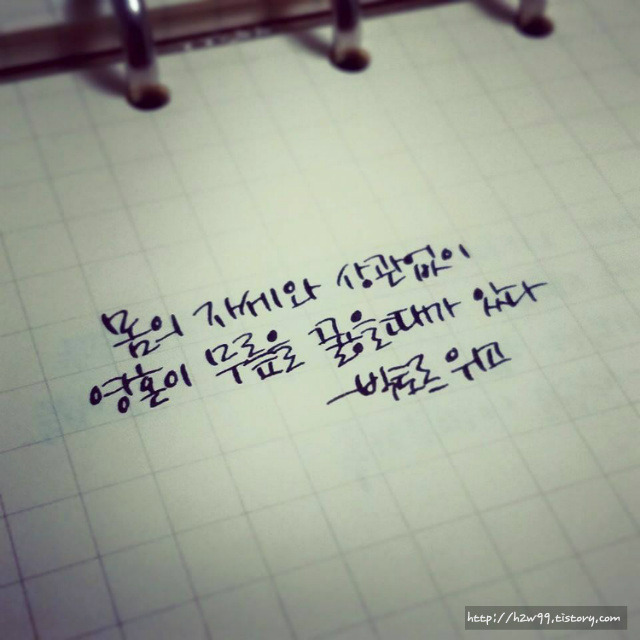 몸의 자세와 상관없이
영혼이 무릎을 꿇을때가 있다
-빅토르 위고
http://h2w99.tistory.com